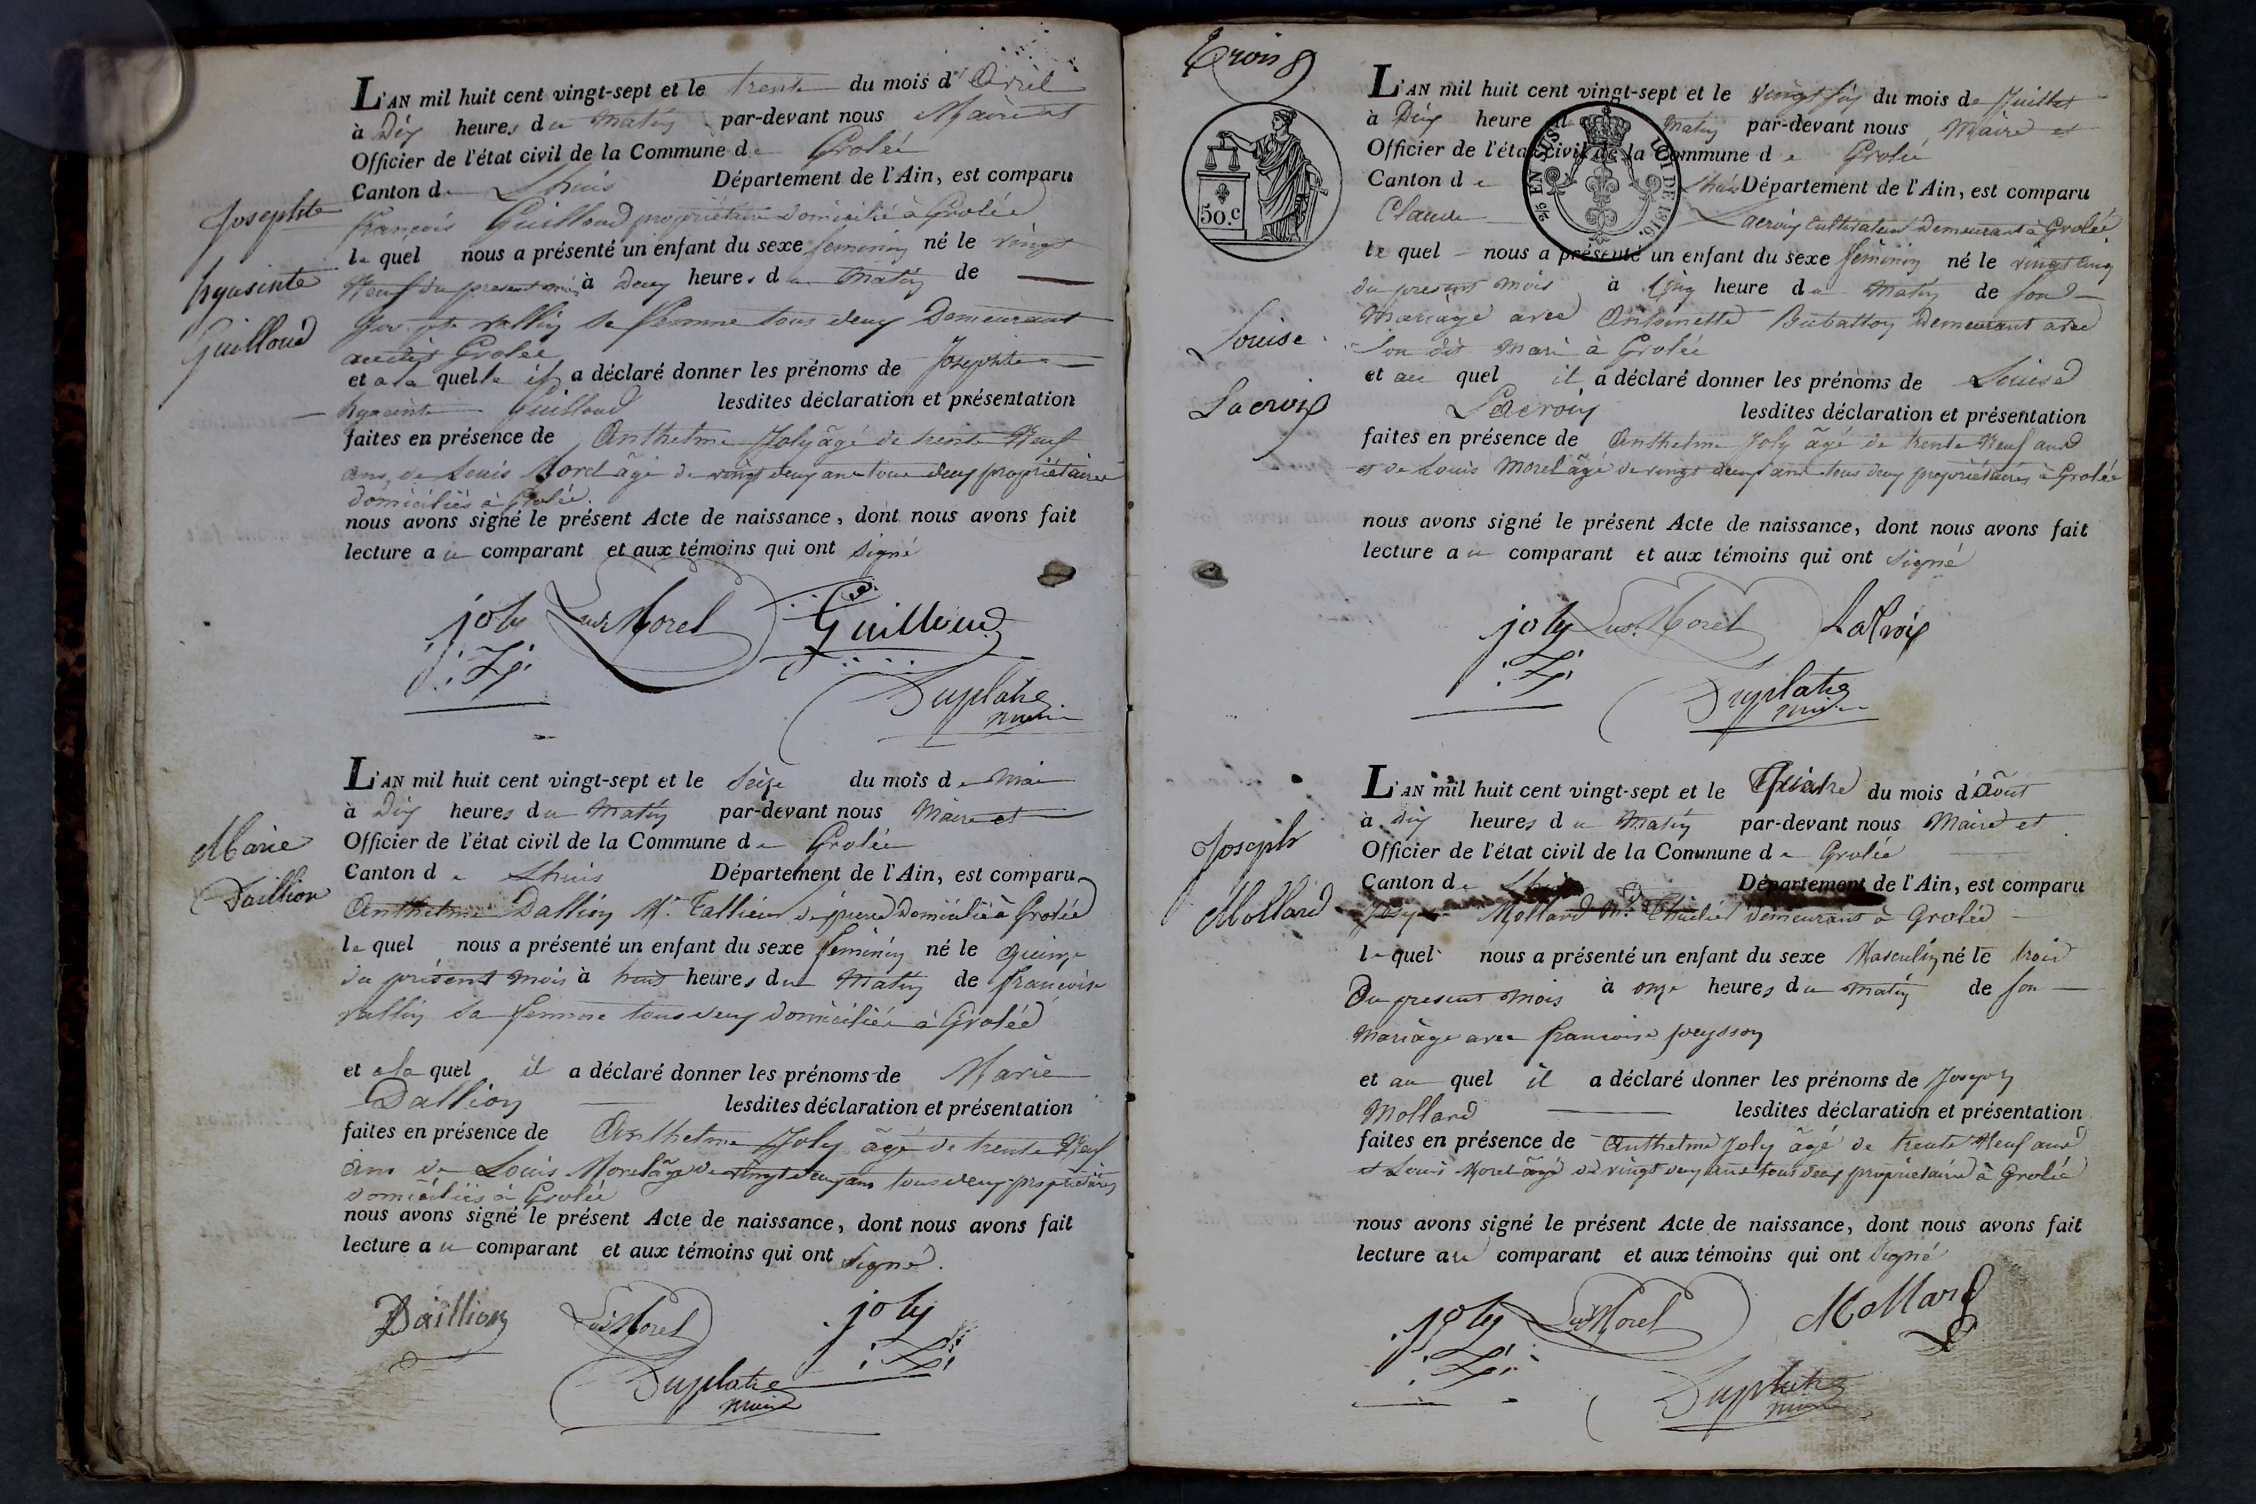 L'AN mil huit cent vingt-sept et le trente du mois d' Avril
à Dix heures du Matin par-devant nous Maire et
Officier de l'état civil de la Commune de Grolée
Canton de Lhuis Département de l'Ain, est comparu
françois Guilloud propriétaire domicilié à Grolée
le quel nous a présenté un enfant du sexe feminin né le vingt
Neuf du present mois à Deux heures du Matin de
vallin Sa femme tous deux Demeurant
audit Grolée
et a la quelle il a déclaré donner les prénoms de Josephte
hyacinte Guilloud lesdites déclaration et présentation
faites en présence de Anthelme Joly âgé de trente Neuf
ans, de Louis Morel âgé de vingt deux ans tous deux propriétaires
domiciliés à Grolée.
nous avons signé le présent Acte de naissance, dont nous avons fait
lecture au comparant et aux témoins qui ont signé
Josephte
hyasinte
Guilloud
joly Louis Morel Guilloud
Duplatre
maire
L'AN mil huit cent vingt-sept et le Seize du mois de Mai
à Dix heures du Matin par-devant nous Maire et
Officier de l'état civil de la Commune de Grolée
Canton de Lhuis Département de l'Ain, est comparu
Anthelme Dallion Mr Tallieur de pierre Domicilié à Grolée
le quel nous a présenté un enfant du sexe feminin né le quinze
du présent mois à huit heures du Matin de francoise
vallin Sa femme tous deux domiciliés à Grolée
et a la quel il a déclaré donner les prénoms de Marie
Dallion lesdites déclaration et présentation
faites en présence de Anthelme Joly âgé de trente Neuf
ans de Louis Morel âgé de vingt deux ans tous deux propriétaires
domiciliés à Grolée
nous avons signé le présent Acte de naissance, dont nous avons fait
lecture au comparant et aux témoins qui ont signé.
Marie
Daillion
Daillion Louis Morel joly
Duplatre
maire
Trois
50.c
EN SUS
LOI DE 1816
L'AN mil huit cent vingt-sept et le vingt six du mois de Juillet
à Dix heure du Matin par-devant nous Maire et
Officier de l'état civil de la Commune de Grolée
Canton de Lhuis Département de l'Ain, est comparu
Claude Lacroix Cultivateur Demeurant à Grolée
le quel nous a présenté un enfant du sexe féminin né le vingt cinq
du present mois à Cinq heure du Matin de son
Mariage avec Antoinette Demeurant avec
Son dit Mari à Grolée
et au quel il a déclaré donner les prénoms de Louise
Lacroix lesdites déclaration et présentation
faites en présence de Anthelme Joly âgé de trente Neuf ans
et de Louis Morel âgé de vingt deux ans tous deux propriétaires à Grolée
nous avons signé le présent Acte de naissance, dont nous avons fait
lecture au comparant et aux témoins qui ont signé
Louise
Lacroix
joly Louis Morel LaCroix
Duplatre
maire
L'AN mil huit cent vingt-sept et le Quatre du mois d'Août
à dix heures du Matin par-devant nous Maire et
Officier de l'état civil de la Commune de Grolée
Canton de Lhuis Département de l'Ain, est comparu
Joseph Mollard Demeurant à Grolée
le quel nous a présenté un enfant du sexe Masculin né le trois
Du present mois à onze heures du matin de son
Mariage avec francoise
et au quel il a déclaré donner les prénoms de Joseph
Mollard lesdites déclaration et présentation
faites en présence de Anthelme Joly âgé de trente Neuf ans
et Louis Morel âgé de vingt deux ans tous deux propriétaire à Grolée
nous avons signé le présent Acte de naissance, dont nous avons fait
lecture au comparant et aux témoins qui ont signé
Joseph
Mollard
joly Louis Morel Mollard
Duplatre
maire